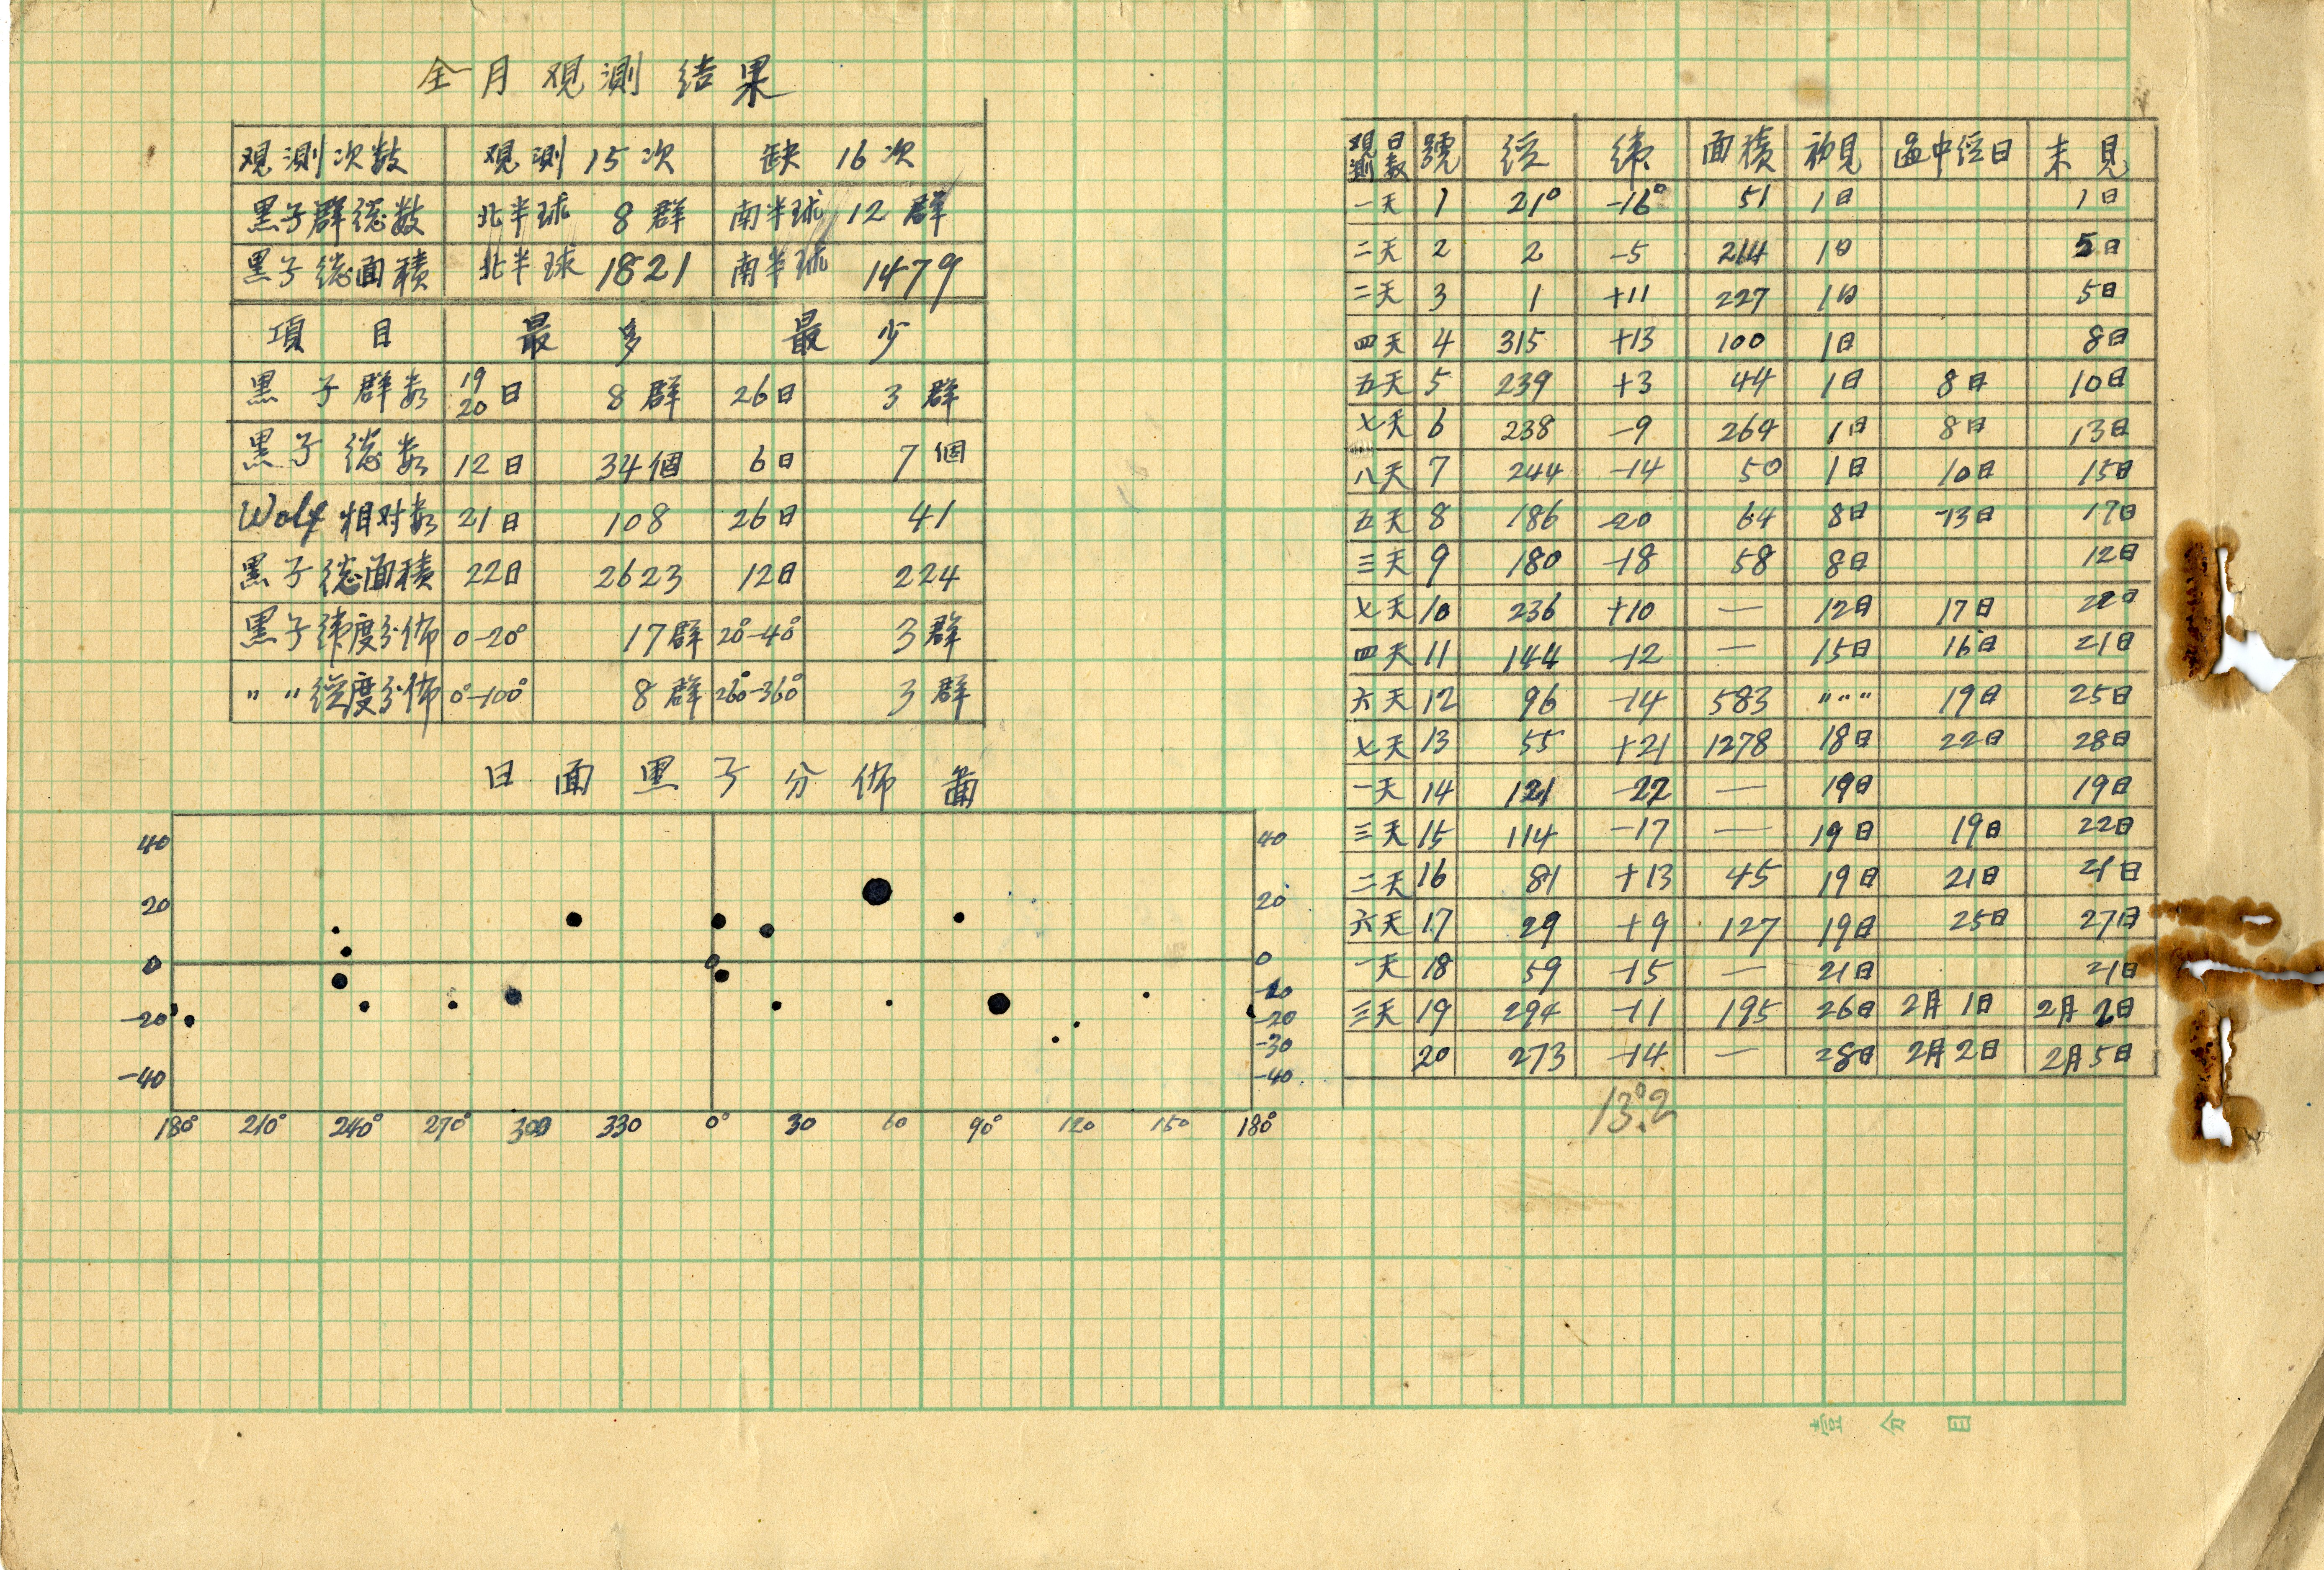 全月观测结果
观测次数 观测15次 缺16次
黑子群总数 北半球 8群 南半球 12群
黑子总面積 北半球 1821 南半球 1479
項目 最多 最少
黑子群数 19 20日 8群 26日 3群
黑子总数 12日 34個 6日 7個
Wolf 相对数 21日 108 26日 41
黑子总面積 22日 2623 12日 224
黑子纬度分佈 0-20° 17群 20°-40° 3群
〃 〃 经度分佈 0°-100° 8群 260°-360° 3群
日面黑子分佈圖
40 40
20 20
0 0
-10
-20 -20
-30
-40 -40
180° 210° 240° 270° 300 330 0° 30 60 90° 120 150 180°
观测日数 號 经 纬 面積 初見 过中经日 末見
一天 1 21° -16° 51 1日 1日
二天 2 2 -5 214 1日 5日
二天 3 1 +11 227 1日 5日
四天 4 315 +13 100 1日 8日
五天 5 239 +3 44 1日 8日 10日
七天 6 238 -9 264 1日 8日 13日
八天 7 244 -14 50 1日 10日 15日
五天 8 186 -20 64 8日 13日 17日
三天 9 180 -18 58 8日 12日
七天 10 236 +10 — 12日 17日 22日
四天 11 144 -12 — 15日 16日 21日
六天 12 96 -14 583 〃〃 19日 25日
七天 13 55 +21 1278 18日 22日 28日
一天 14 121 -22 — 19日 19日
三天 15 114 -17 — 19日 19日 22日
二天 16 81 +13 45 19日 21日 21日
六天 17 29 +9 127 19日 25日 27日
一天 18 59 -15 — 21日 21日
三天 19 294 -11 195 26日 2月1日 2月2日
20 273 -14 — 28日 2月2日 2月5日
13°.2
壹分目